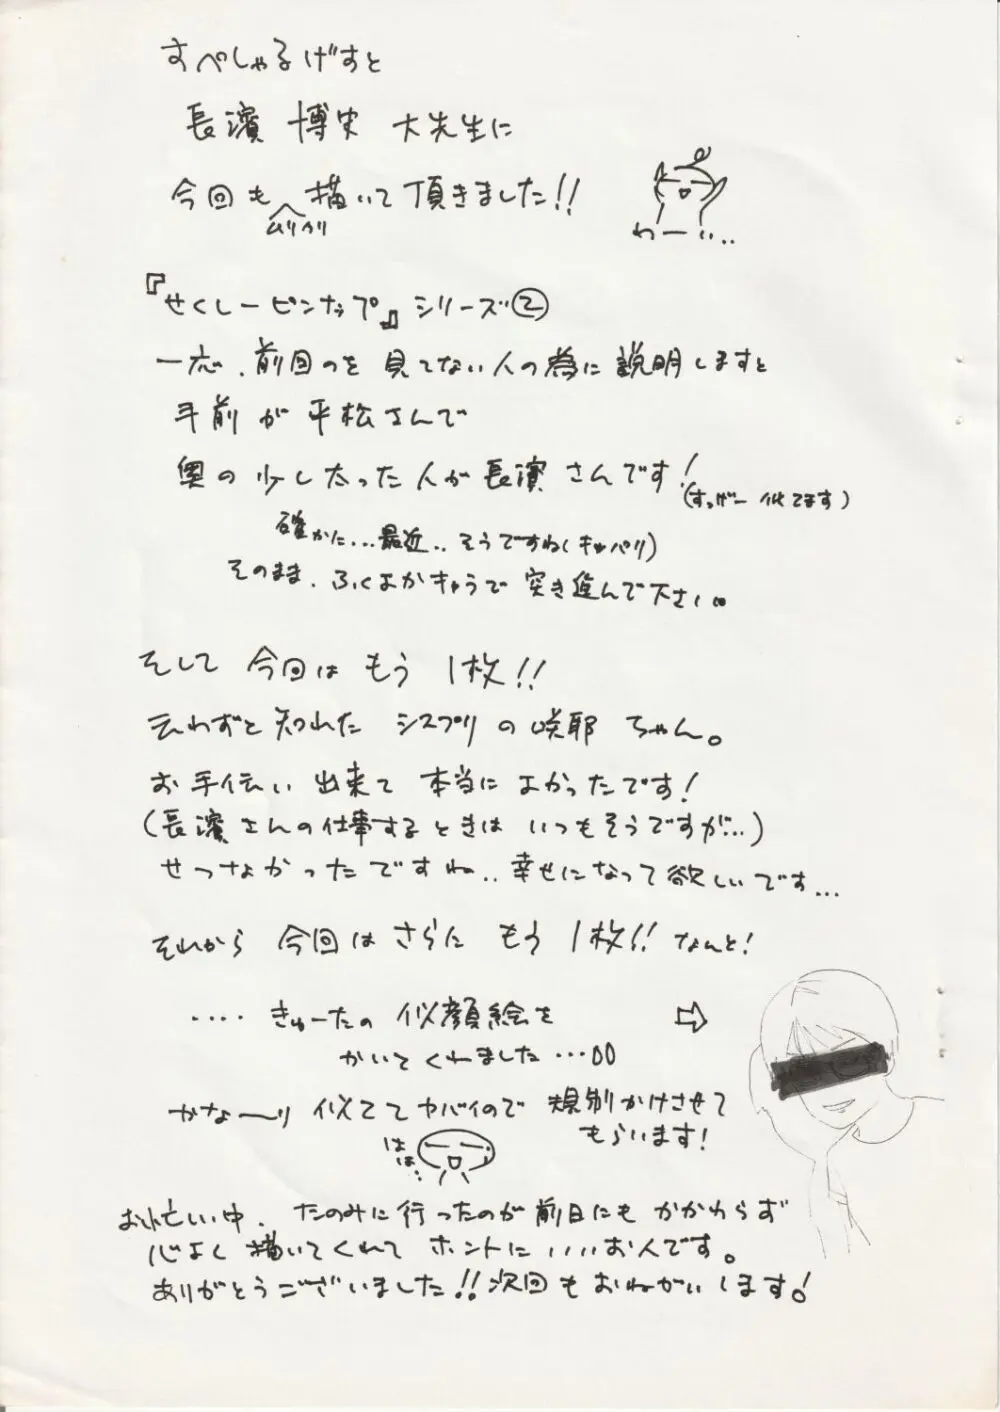 すぺしゃるげすと
長濱 博史 大先生に
今回も 描いて頂きました!!
ムリクリ
わーい..
『せくしーピンナップ』シリーズ②
一応、前回のを見てない人の為に説明しますと
手前が平松さんで
奥の少し太った人が長濱さんです!
(すっげー似てます)
確かに...最近..そうですね(キッパリ)
そのまま、ふくよかキャラで突き進んで下さい。
そして今回はもう1枚!!
云わずと知れたシスプリの咲耶ちゃん。
お手伝い出来て本当によかったです!
(長濱さんの仕事するときはいつもそうですが...)
せつなかったですね..幸せになって欲しいです...
それから今回はさらにもう1枚!!なんと!
....きゅーたの似顔絵を
かいてくれました...
⇨
かな〜り似ててヤバイので規制かけさせて
もらいます!
はは..
お忙しい中、たのみに行ったのが前日にもかかわらず
心よく描いてくれてホントにいいお人です。
ありがとうございました!!次回もおねがいします!